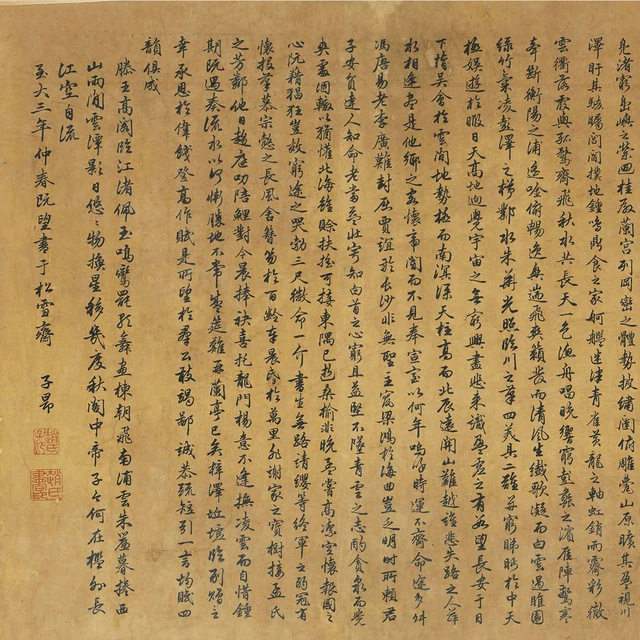 鳧渚窮島嶼之縈迴桂殿蘭宮列岡巒之體勢披繡闥俯雕甍山原曠其盈視川
澤盱其駭矚閭閻撲地鐘鳴鼎食之家舸艦迷津青雀黃龍之軸虹銷雨霽彩徹
雲衢落霞與孤鶩齊飛秋水共長天一色漁舟唱晚響窮彭蠡之濱雁陣驚寒
聲斷衡陽之浦遙吟俯暢逸興遄飛爽籟發而清風生纖歌凝而白雲遏睢園
綠竹氣凌彭澤之樽鄴水朱華光照臨川之筆四美具二難并窮睇眄於中天
極娛遊於暇日天高地迥覺宇宙之無窮興盡悲來識盈虛之有數望長安於日
下指吳會於雲間地勢極而南溟深天柱高而北辰遠關山難越誰悲失路之人萍
水相逢盡是他鄉之客懷帝閽而不見奉宣室以何年嗚呼時運不齊命途多舛
馮唐易老李廣難封屈賈誼於長沙非無聖主竄梁鴻於海曲豈乏明時所賴君
子安貧達人知命老當益壯寧知白首之心窮且益堅不墜青雲之志酌貪泉而覺
爽處涸轍以猶懽北海雖賒扶搖可接東隅已逝桑榆非晚孟嘗高潔空懷報國之
心阮籍猖狂豈效窮途之哭勃三尺微命一介書生無路請纓等終軍之弱冠有
懷投筆慕宗慤之長風舍簪笏於百齡奉晨昏於萬里非謝家之寶樹接孟氏
之芳鄰他日趨庭叨陪鯉對今晨捧袂喜托龍門楊意不逢撫凌雲而自惜鍾
期既遇奏流水以何慚勝地不常盛筵難再蘭亭已矣梓澤坵墟臨別贈言
幸承恩於偉餞登高作賦是所望於群公敢竭鄙誠恭疏短引一言均賦四
韻俱成
滕王高閣臨江渚佩玉鳴鸞罷歌舞畫棟朝飛南浦雲朱簾暮捲西
山雨閒雲潭影日悠悠物換星移幾度秋閣中帝子今何在檻外長
江空自流
至大三年仲春既望書于松雪齋 子昂